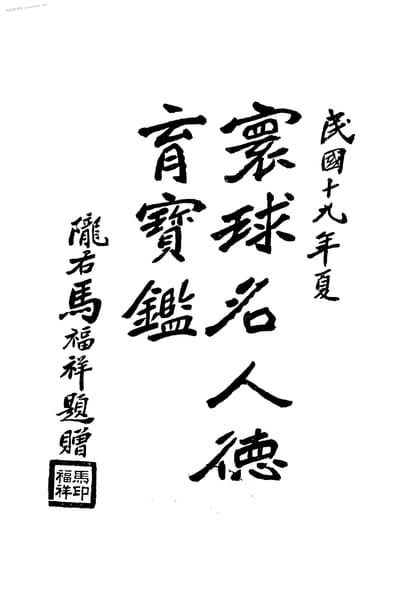 民國十九年夏
寰球名人德
育寶鑑
隴右馬福祥題贈
馬福祥印